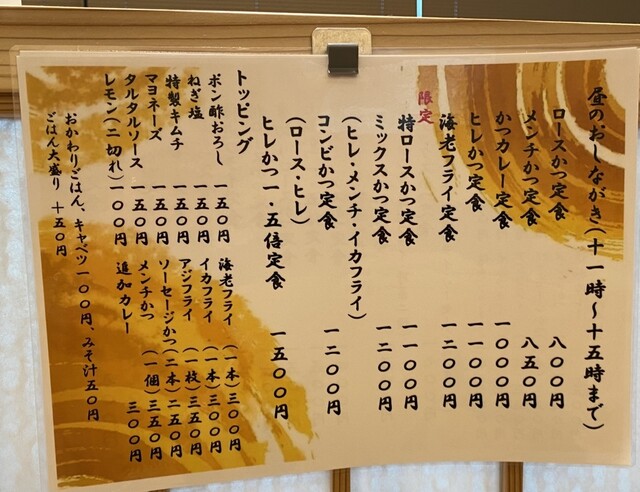 昼のおしながき(十一時〜十五時まで)
ロースかつ定食 八〇〇円
メンチかつ定食 八五〇円
かつカレー定食 一〇〇〇円
ヒレかつ定食 一一〇〇円
海老フライ定食 一二〇〇円
限定
特ロースかつ定食 一一〇〇円
ミックスかつ定食 一二〇〇円
(ヒレ・メンチ・イカフライ)
コンビかつ定食 一二〇〇円
(ロース・ヒレ)
ヒレかつ一・五倍定食 一五〇〇円
トッピング
ポン酢おろし 一五〇円
ねぎ塩 一五〇円
特製キムチ 一五〇円
マヨネーズ 一五〇円
タルタルソース 一五〇円
レモン(二切れ) 一〇〇円
海老フライ (一本) 三〇〇円
イカフライ (一本) 三〇〇円
アジフライ (一枚) 三五〇円
ソーセージかつ (二本) 二五〇円
メンチかつ (一個) 三五〇円
追加カレー 三〇〇円
おかわりごはん、キャベツ一〇〇円、みそ汁五〇円
ごはん大盛り +五〇円